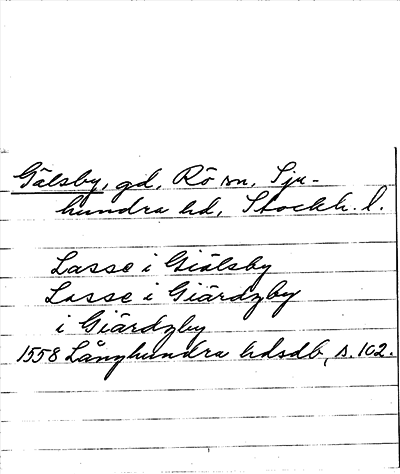 Gälsby, gd, Rö sn, Sju-
hundra hd, Stockh. l.
Lasse i Giälsby
Lasse i Giärdzby
i Giärdzby
1558 Långhundra hdsdb, s. 102.